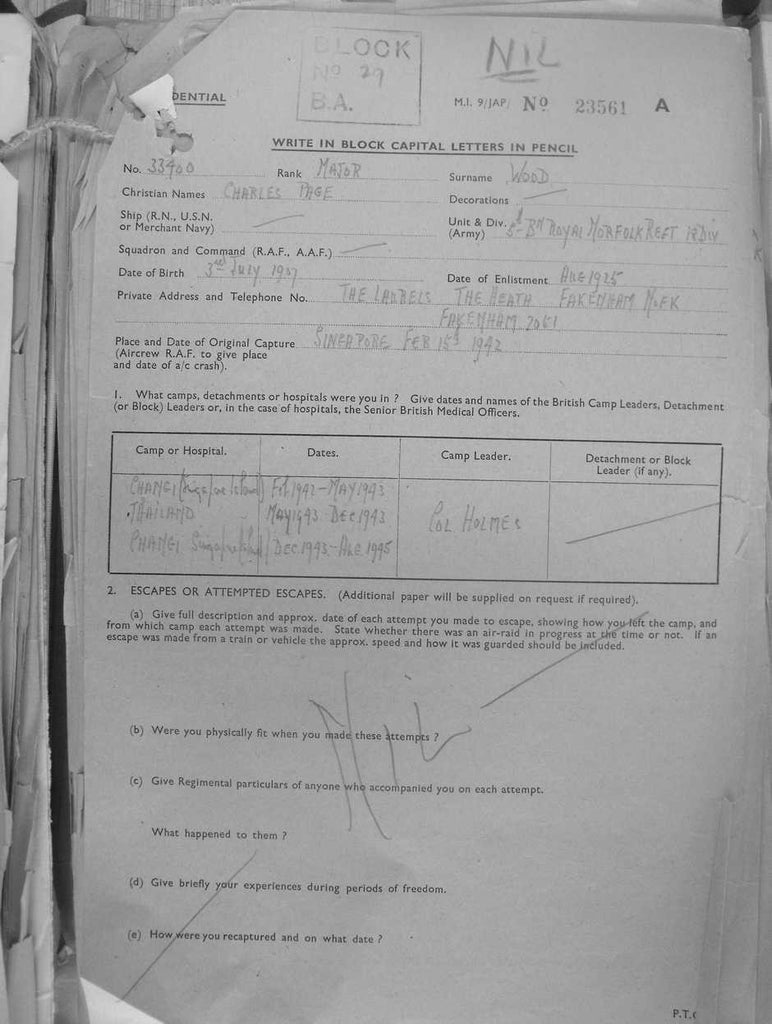 BLOCK
No 29
B.A.
NIL
DENTIAL
M.I. 9/JAP/ No 23561 A
WRITE IN BLOCK CAPITAL LETTERS IN PENCIL
No. 33400 Rank MAJOR Surname WOOD
Christian Names CHARLES PAGE Decorations
Ship (R.N., U.S.N.
or Merchant Navy)
Unit & Div. BN ROYAL NORFOLK REGT 18 Div
(Army)
Squadron and Command (R.A.F., A.A.F.)
Date of Birth 3rd July 1907 Date of Enlistment AUG 1925
Private Address and Telephone No. THE LAURELS THE HEATH FAKENHAM
FAKENHAM 2051
Place and Date of Original Capture SINGAPORE FEB 15th 1942
(Aircrew R.A.F. to give place
and date of a/c crash).
1. What camps, detachments or hospitals were you in ? Give dates and names of the British Camp Leaders, Detachment
(or Block) Leaders or, in the case of hospitals, the Senior British Medical Officers.
Camp or Hospital. Dates. Camp Leader. Detachment or Block
Leader (if any).
CHANGI (Singapore Island) Feb 1942 - MAY 1943
THAILAND MAY 1943 DEC 1943 COL HOLMES
CHANGI Singapore Island DEC 1943 - AUG 1945
2. ESCAPES OR ATTEMPTED ESCAPES. (Additional paper will be supplied on request if required).
(a) Give full description and approx. date of each attempt you made to escape, showing how you left the camp, and
from which camp each attempt was made. State whether there was an air-raid in progress at the time or not. If an
escape was made from a train or vehicle the approx. speed and how it was guarded should be included.
NIL
(b) Were you physically fit when you made these attempts ?
(c) Give Regimental particulars of anyone who accompanied you on each attempt.
What happened to them ?
(d) Give briefly your experiences during periods of freedom.
(e) How were you recaptured and on what date ?
P.T.